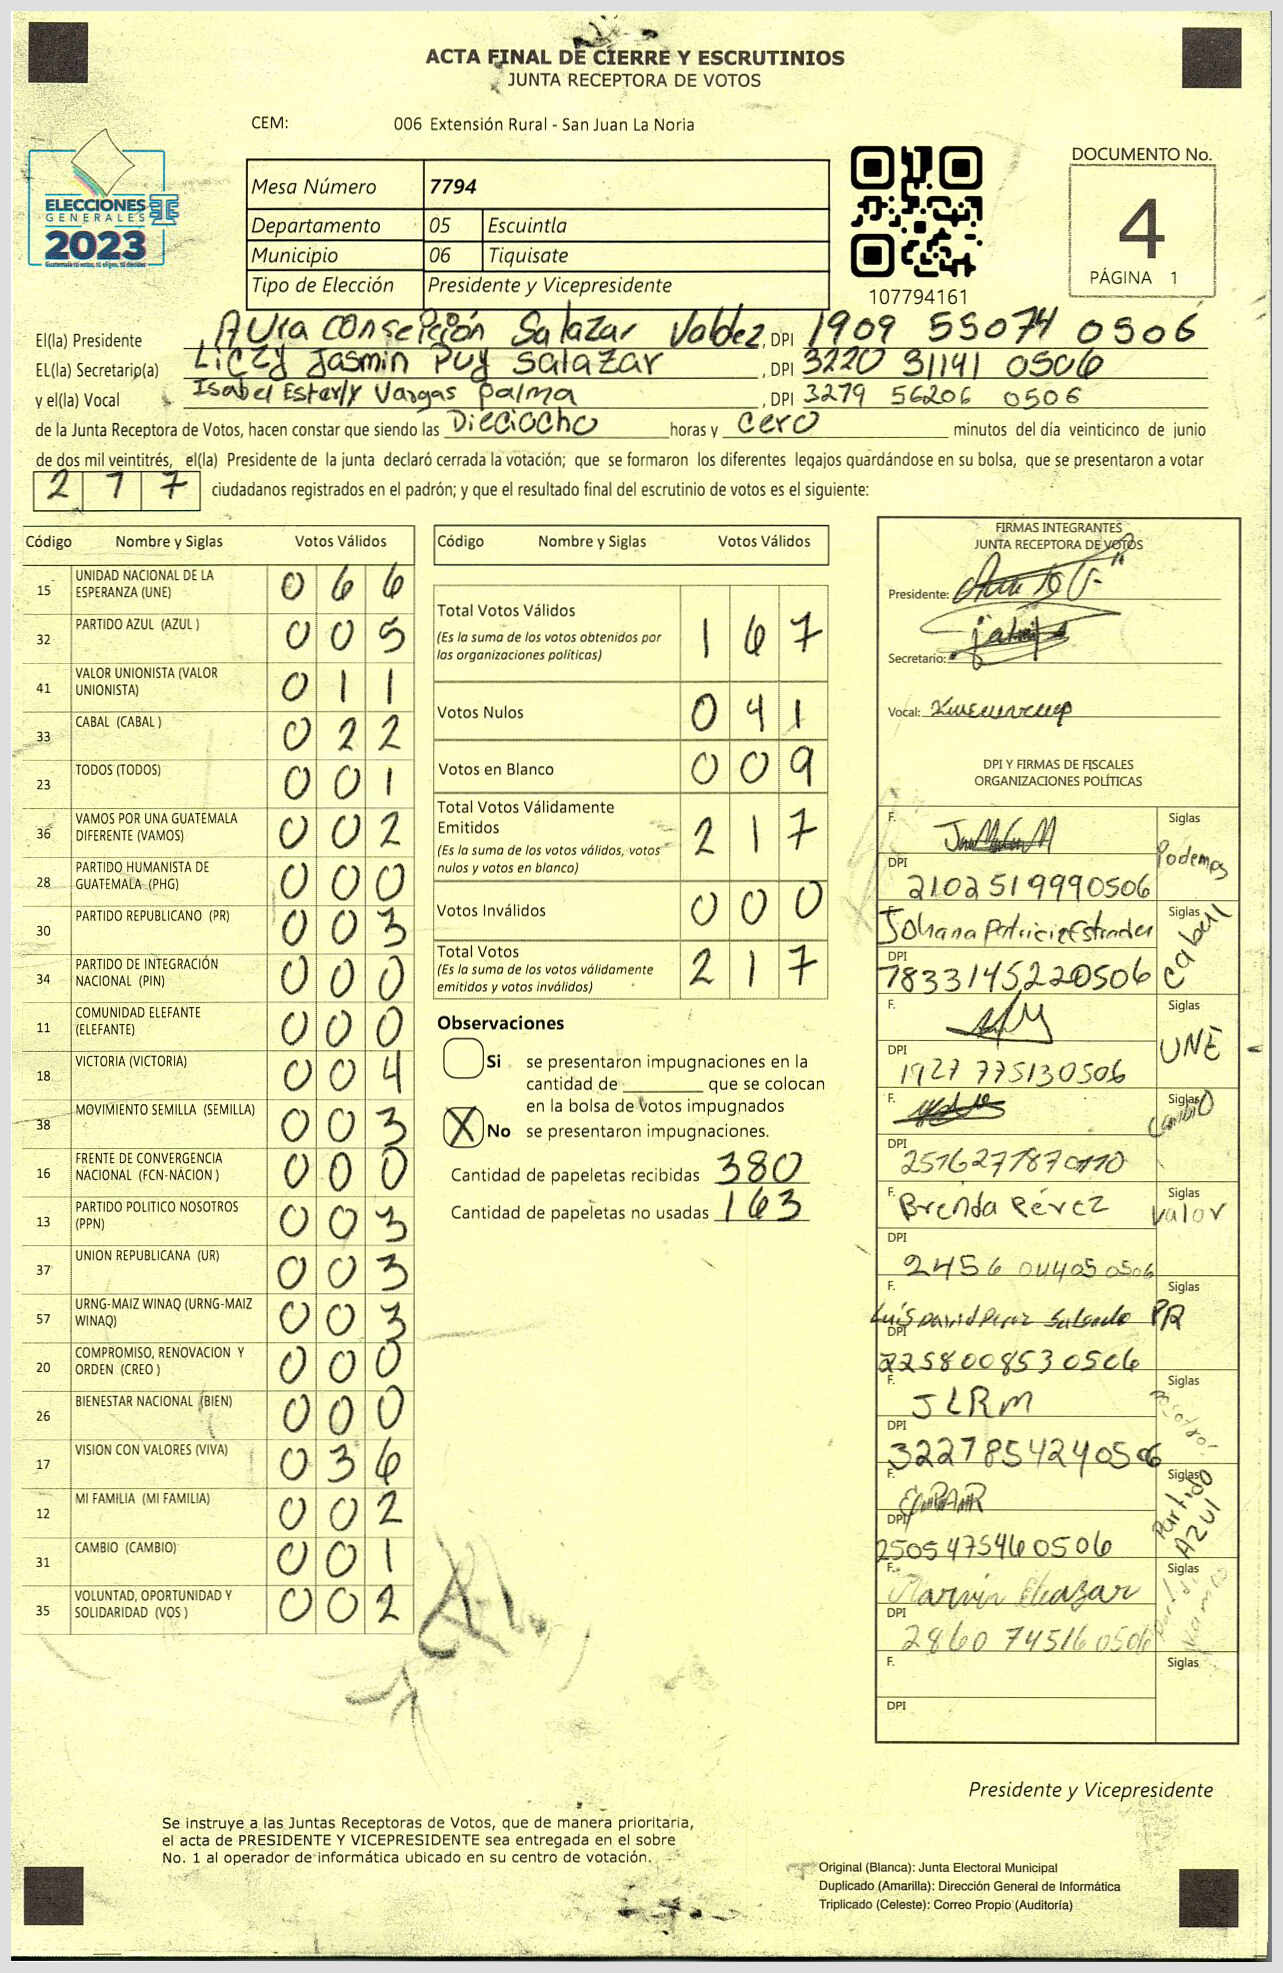 ACTA FINAL DE CIERRE Y ESCRUTINIOS
JUNTA RECEPTORA DE VOTOS
CEM: 006 Extensión Rural - San Juan La Noria
ELECCIONES
GENERALES
2023
Mesa Número 7794
Departamento 05 Escuintla
Municipio 06 Tiquisate
Tipo de Elección Presidente y Vicepresidente
107794161
DOCUMENTO No.
4
PÁGINA 1
El(la) Presidente Aura Consepción Salazar Valdez, DPI 1909 55074 0506
EL(la) Secretario(a) Liczy Jasmin Puy Salazar, DPI 3220 31141 0506
y el(la) Vocal Isabel Esterly Vargas Palma, DPI 3279 56206 0506
de la Junta Receptora de Votos, hacen constar que siendo las Dieciocho horas y cero minutos del día veinticinco de junio
de dos mil veintitrés, el(la) Presidente de la junta declaró cerrada la votación; que se formaron los diferentes legajos guardándose en su bolsa, que se presentaron a votar
217 ciudadanos registrados en el padrón; y que el resultado final del escrutinio de votos es el siguiente:
Código Nombre y Siglas Votos Válidos
15 UNIDAD NACIONAL DE LA ESPERANZA (UNE) 066
32 PARTIDO AZUL (AZUL ) 005
41 VALOR UNIONISTA (VALOR UNIONISTA) 011
33 CABAL (CABAL ) 022
23 TODOS (TODOS) 001
36 VAMOS POR UNA GUATEMALA DIFERENTE (VAMOS) 002
28 PARTIDO HUMANISTA DE GUATEMALA (PHG) 000
30 PARTIDO REPUBLICANO (PR) 003
34 PARTIDO DE INTEGRACIÓN NACIONAL (PIN) 000
11 COMUNIDAD ELEFANTE (ELEFANTE) 000
18 VICTORIA (VICTORIA) 004
38 MOVIMIENTO SEMILLA (SEMILLA) 003
16 FRENTE DE CONVERGENCIA NACIONAL (FCN-NACION ) 000
13 PARTIDO POLITICO NOSOTROS (PPN) 003
37 UNION REPUBLICANA (UR) 003
57 URNG-MAIZ WINAQ (URNG-MAIZ WINAQ) 003
20 COMPROMISO, RENOVACION Y ORDEN (CREO ) 000
26 BIENESTAR NACIONAL (BIEN) 000
17 VISION CON VALORES (VIVA) 036
12 MI FAMILIA (MI FAMILIA) 002
31 CAMBIO (CAMBIO) 001
35 VOLUNTAD, OPORTUNIDAD Y SOLIDARIDAD (VOS ) 002
Código Nombre y Siglas Votos Válidos
Total Votos Válidos 167
(Es la suma de los votos obtenidos por
las organizaciones políticas)
Votos Nulos 041
Votos en Blanco 009
Total Votos Válidamente
Emitidos 217
(Es la suma de los votos válidos, votos
nulos y votos en blanco)
Votos Inválidos 000
Total Votos 217
(Es la suma de los votos válidamente
emitidos y votos inválidos)
Observaciones
Si se presentaron impugnaciones en la
cantidad de ________ que se colocan
en la bolsa de votos impugnados
X No se presentaron impugnaciones.
Cantidad de papeletas recibidas 380
Cantidad de papeletas no usadas 163
FIRMAS INTEGRANTES
JUNTA RECEPTORA DE VOTOS
Presidente:
Secretario:
Vocal:
DPI Y FIRMAS DE FISCALES
ORGANIZACIONES POLÍTICAS
F. Siglas Podemos
DPI 2102519990506
Johana Patricia Estrada Siglas Cabal
DPI 7833145220506
F. Siglas UNE
DPI 1927 775130506
F. Siglas Cambio
DPI
F. Brenda Pérez Siglas Valor
DPI 2456 044050506
F. Luis David Perez Salcedo Siglas PR
DPI 2258008530506
F. JLRM Siglas
DPI 3227854240506
F. Siglas Partido AZUL
DPI 2505475460506
F. Marvin Eleazar Siglas
DPI 2860 745160506
F. Siglas
DPI
Presidente y Vicepresidente
Se instruye a las Juntas Receptoras de Votos, que de manera prioritaria,
el acta de PRESIDENTE Y VICEPRESIDENTE sea entregada en el sobre
No. 1 al operador de informática ubicado en su centro de votación.
Original (Blanca): Junta Electoral Municipal
Duplicado (Amarilla): Dirección General de Informática
Triplicado (Celeste): Correo Propio (Auditoría)